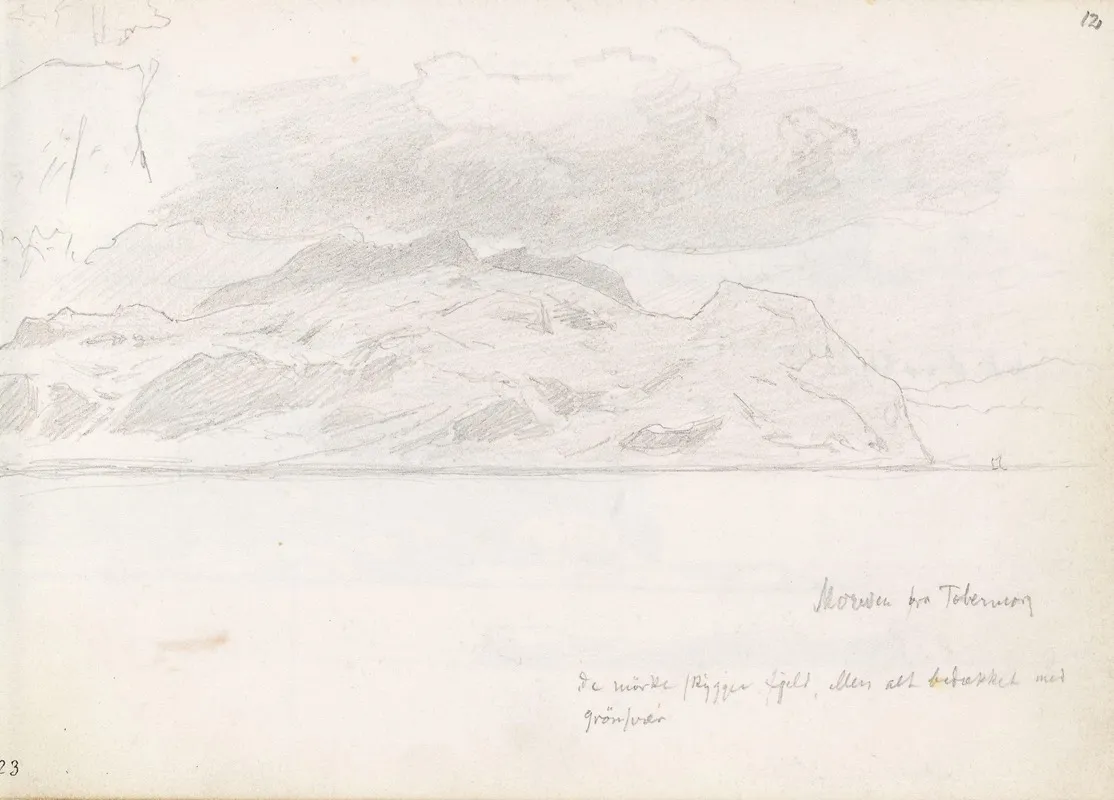 12
Morven fra Tobermory
De mörke skygger fjeld, ellers alt bedækket med
grönsvær
23